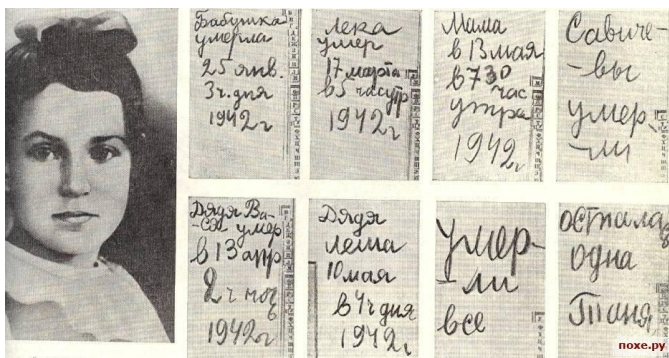 Бабушка
умерла
25 янв.
3ч. дня
1942 г
лека
умер
17 марта
в 5 час утр
1942 г
Мама
в 13 мая
в 7 30
час
утра
1942 г
Савиче-
-вы
умер
-ли
Дядя Ва-
-ся умер
в 13 апр
2 ч ноч
1942 г
Дядя
леша
10 мая
в 4 ч дня
1942 г
умер-
-ли
все
одна
Таня
похе.ру